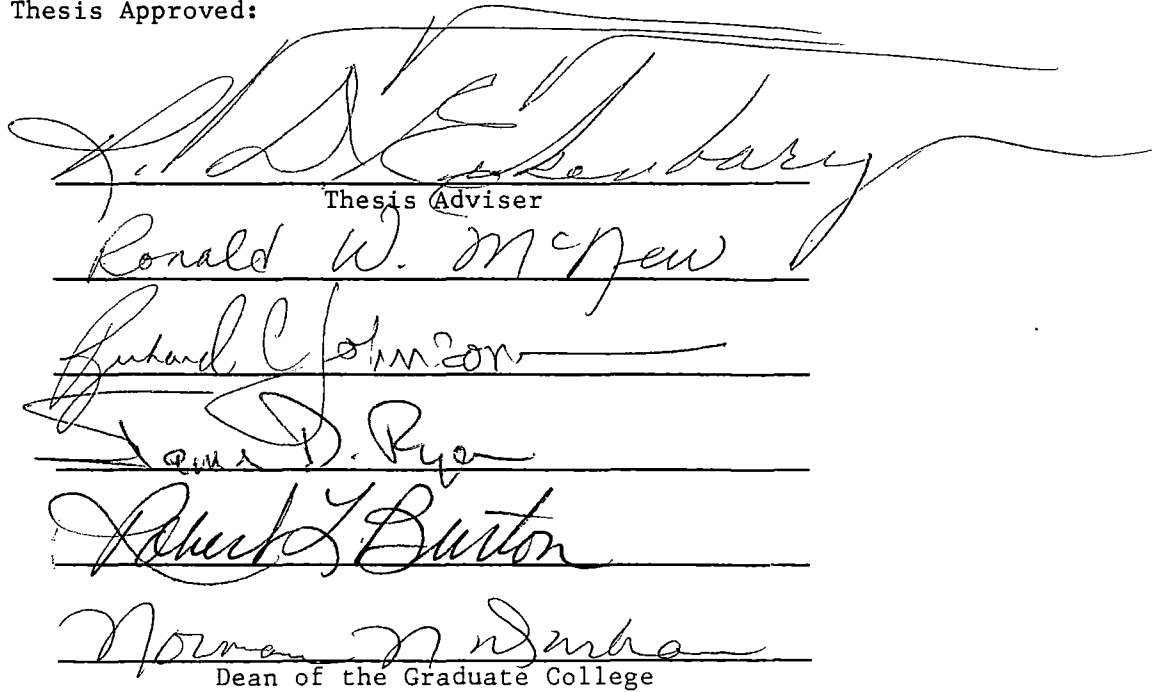 Thesis Approved:
R. D. Eikenbary
Thesis Adviser
Ronald W. McNew
Richard C Johnson
James D. Ryan
Robert L. Burton
Norman N Durham
Dean of the Graduate College